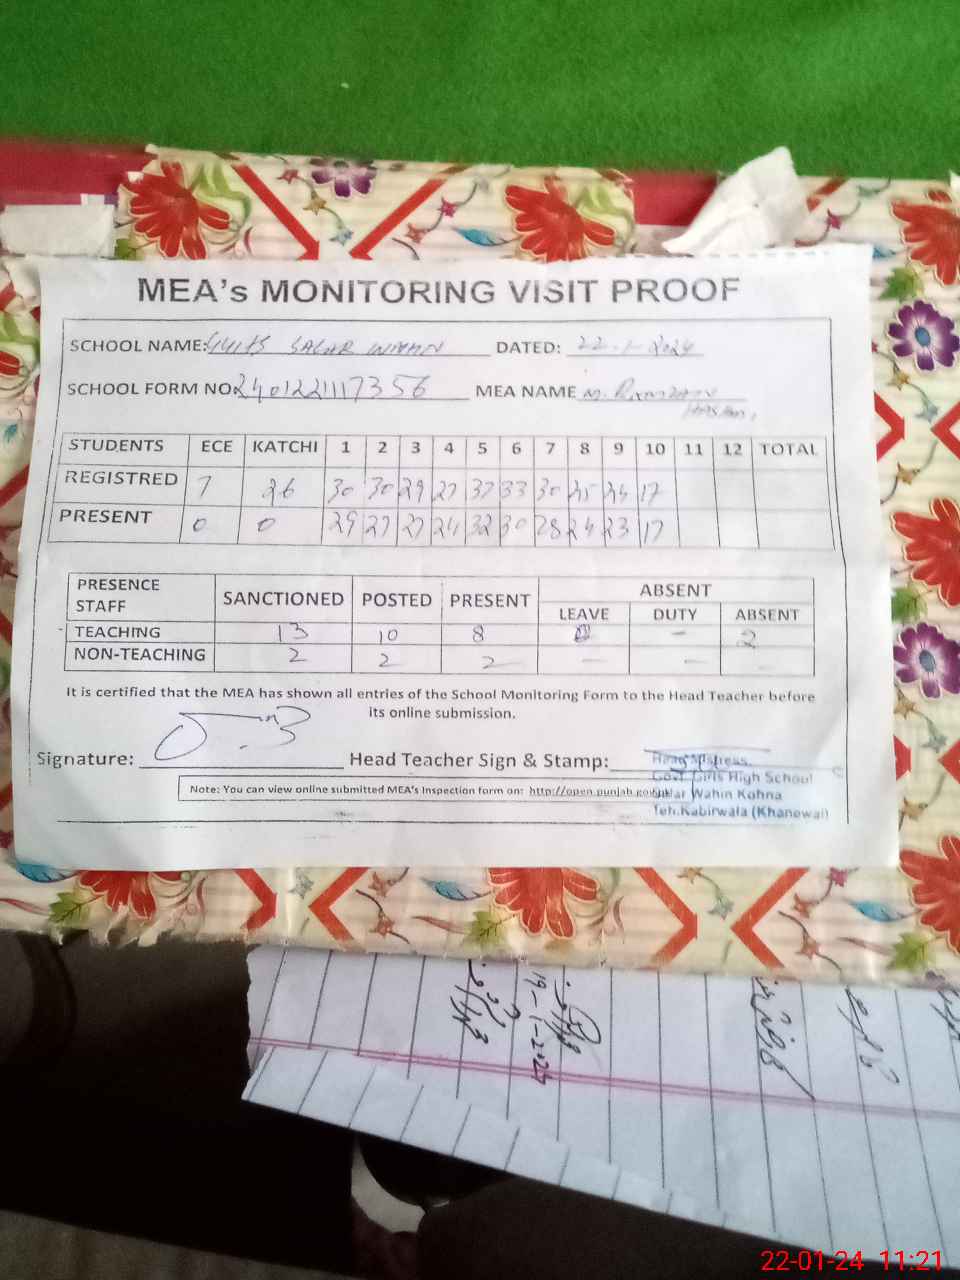 MEA's MONITORING VISIT PROOF
SCHOOL NAME: GGHS SALAR WAHIN DATED: 22-1-2024
SCHOOL FORM NO 2401221117356 MEA NAME M. Ramzan
Hassan,
STUDENTS ECE KATCHI 1 2 3 4 5 6 7 8 9 10 11 12 TOTAL
REGISTRED 7 26 30 30 29 27 37 33 30 25 24 17
PRESENT 0 0 29 27 27 24 32 30 28 24 23 17
PRESENCE STAFF SANCTIONED POSTED PRESENT ABSENT
LEAVE DUTY ABSENT
TEACHING 13 10 8 - 2
NON-TEACHING 2 2 2 - - -
It is certified that the MEA has shown all entries of the School Monitoring Form to the Head Teacher before
its online submission.
Signature: Head Teacher Sign & Stamp:
Head Mistress
Govt. Girls High School
Salar Wahin Kohna
Teh.Kabirwala (Khanewal)
Note: You can view online submitted MEA's Inspection form on: http://open.punjab.gov.pk
19-1-2024
22-01-24 11:21